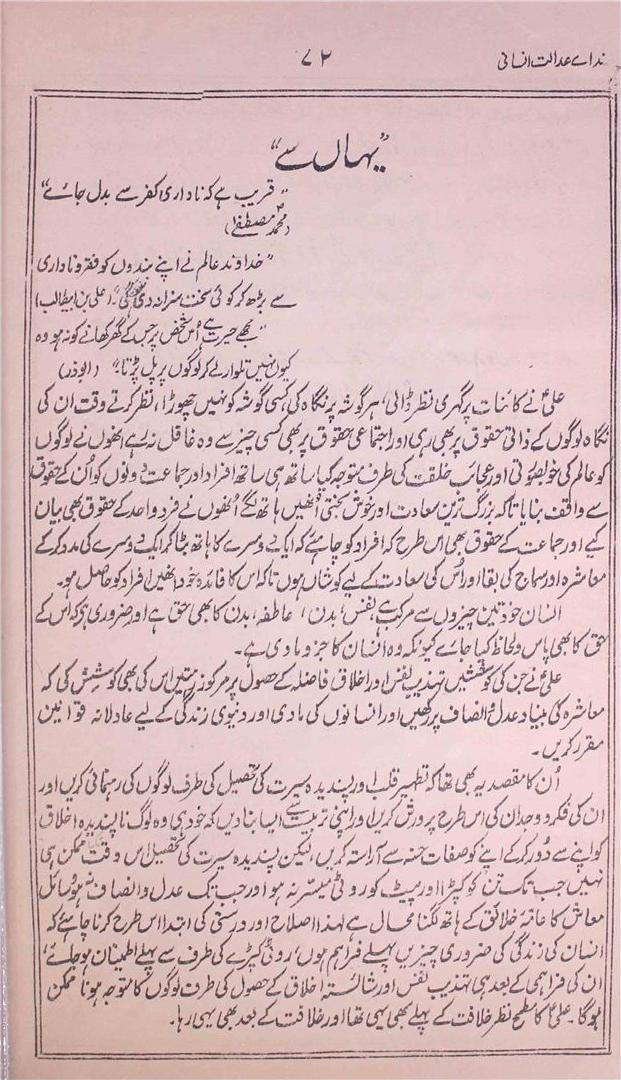 ندائے عدالت انسانی
۷۲
"یہاں سے"
"قریب ہے کہ ناداری کفر سے بدل جائے"
(محمد مصطفےٰ)
"خداوند عالم نے اپنے بندوں کو فقر و ناداری
سے بڑھ کر کوئی سخت سزا نہ دی ہوگی۔" (علی بن ابیطالب)
"مجھے حیرت ہے اُس شخص پر جس کے گھر کھانے کو نہ ہو وہ
کیوں نہیں تلوار لے کر لوگوں پر پل پڑتا؟" (ابوذر)
علیؑ نے کائنات پر گہری نظر ڈالی، ہر گوشہ پر نگاہ کی، کسی گوشہ کو نہیں چھوڑا، نظر کرتے وقت ان کی
نگاہ لوگوں کے ذاتی حقوق پر بھی رہی اور اجتماعی حقوق پر بھی کسی چیز سے وہ غافل نہ رہے انھوں نے لوگوں
کو عالم کی خوبصورتی اور عجائب خلقت کی طرف متوجہ کیا ساتھ ہی ساتھ افراد اور جماعت دونوں کو اُن کے حقوق
سے واقف بنایا تاکہ بزرگ ترین سعادت اور خوش بختی اُنھیں ہاتھ لگے اُنھوں نے فرد واحد کے حقوق بھی بیان
کیے اور جماعت کے حقوق بھی اس طرح کہ افراد کو چاہئے کہ ایک دوسرے کا ہاتھ بٹا کر ایک دوسرے کی مدد کر کے
معاشرہ اور سماج کی بقا اور اُس کی سعادت کے لیے کوشاں ہوں تاکہ اس کا فائدہ خود انھیں افراد کو حاصل ہو۔
انسان خود تین چیزوں سے مرکب ہے نفس، بدن، عاطفہ، بدن کا بھی حق ہے اور ضروری ہے کہ اس کے
حق کا بھی پاس و لحاظ کیا جائے کیونکہ وہ انسان کا جزو مادی ہے۔
علیؑ نے جن کی کوششیں تہذیب نفس اور اخلاق فاضلہ کے حصول پر مرکوز رہیں اس کی بھی کوشش کی کہ
معاشرہ کی بنیاد عدل و انصاف پر رکھیں اور انسانوں کی مادی اور دنیوی زندگی کے لیے عادلانہ قوانین
مقرر کریں۔
اُن کا مقصد یہ بھی تھا کہ تطہیر قلب اور پسندیدہ سیرت کی تحصیل کی طرف لوگوں کی رہنمائی کریں اور
ان کی فکر و وجدان کی اس طرح پرورش کریں اور اپنی تربیت سے ایسا بنا دیں کہ خود ہی وہ لوگ ناپسندیدہ اخلاق
کو اپنے سے دُور کر کے اپنے کو صفات حسنہ سے آراستہ کریں، لیکن پسندیدہ سیرت کی تحصیل اس وقت ممکن ہی
نہیں جب تک تن کو کپڑا اور پیٹ کو روٹی میسر نہ ہو اور جب تک عدل و انصاف نہ ہو وسائل
معاش کا عامۂ خلائق کے ہاتھ لگنا محال ہے لہذا اصلاح اور درستی کی ابتدا اس طرح کرنا چاہئے کہ
انسان کی زندگی کی ضروری چیزیں پہلے فراہم ہوں، روٹی کپڑے کی طرف سے پہلے اطمینان ہو جائے،
ان کی فراہمی کے بعد ہی تہذیب نفس اور شائستہ اخلاق کے حصول کی طرف لوگوں کا متوجہ ہونا ممکن
ہوگا۔ علیؑ کا مطمح نظر خلافت کے پہلے بھی یہی تھا اور خلافت کے بعد بھی یہی رہا۔